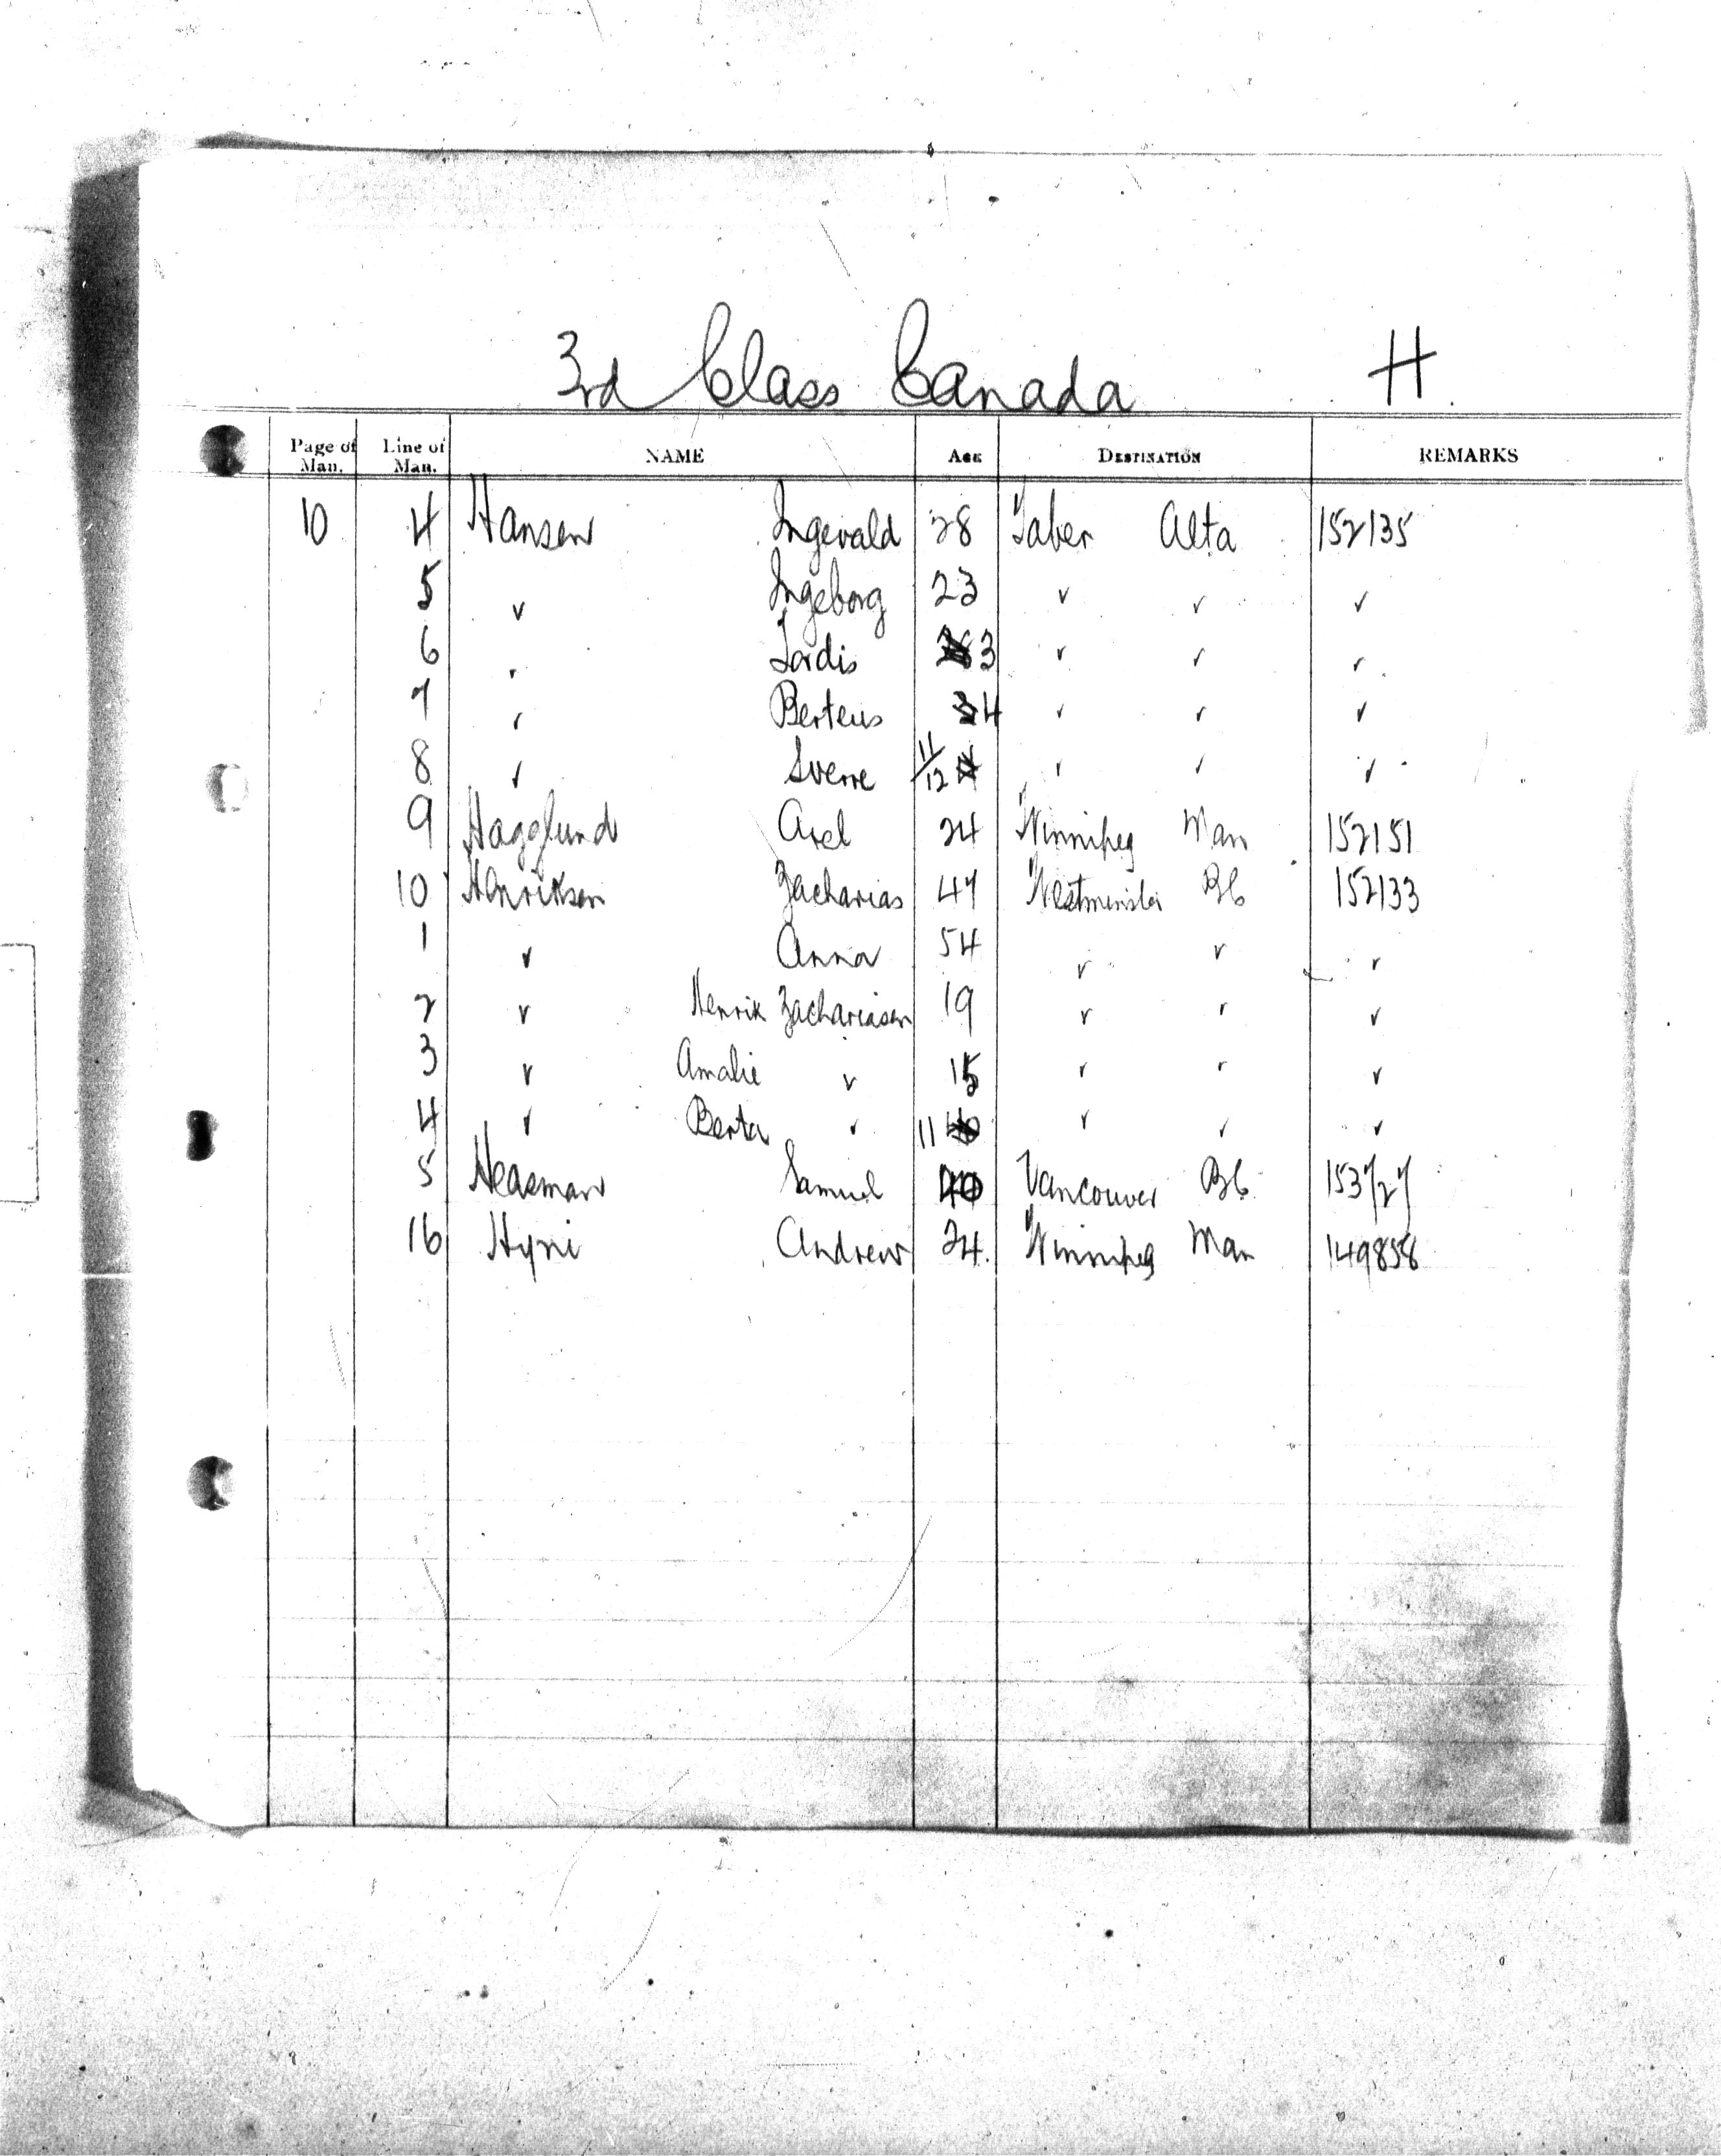 3rd Class Canada H
Page of Man. Line of Man. NAME AGE DESTINATION REMARKS
10 4 Hansen Ingevald 28 Taber Alta 152135
5 " Ingeborg 23 " " "
6 " Jordis 3 " " "
7 " Berteus 4 " " "
8 " Sverre 11/12 " " "
9 Hagglund Axel 24 Winnipeg Man 152151
10 Henriksen Zacharias 47 Westminster BC 152133
1 " Anna 54 " " "
2 " Henrik Zachariasen 19 " " "
3 " Amalie " 15 " " "
4 " Berta " 11 " " "
5 Heasman Samuel 40 Vancouver BC 153727
16 Hyni Andrew 24 Winnipeg Man 149858